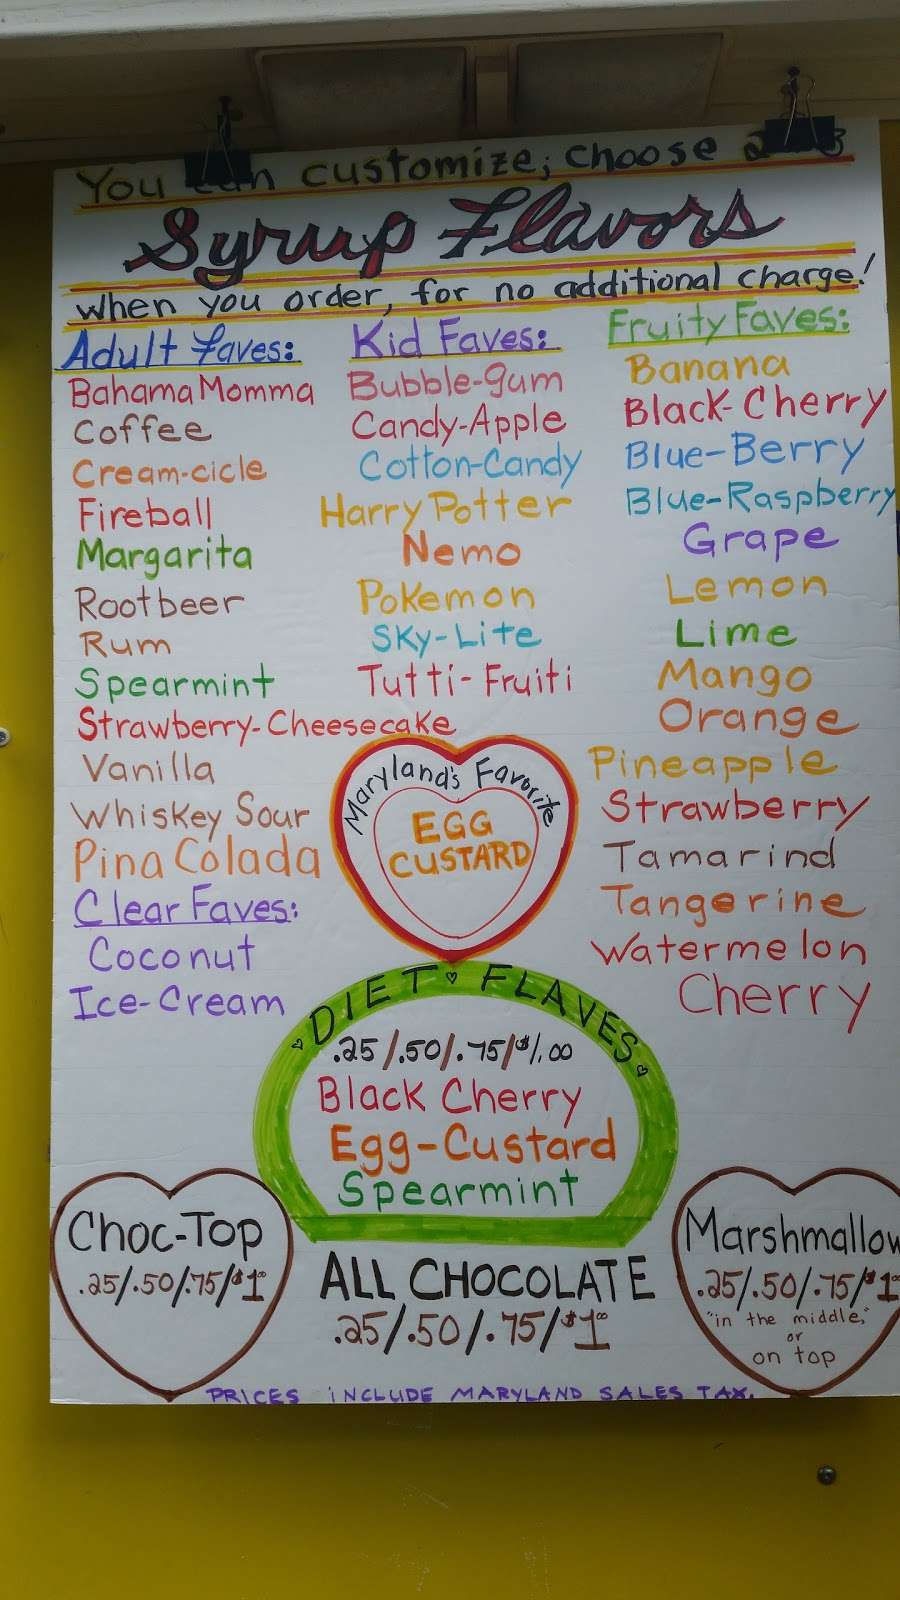 You can customize; choose 2
Syrup Flavors
when you order, for no additional charge!
Adult Faves:
Bahama Momma
Coffee
Cream-cicle
Fireball
Margarita
Rootbeer
Rum
Spearmint
Strawberry-Cheesecake
Vanilla
Whiskey Sour
Pina Colada
Clear Faves:
Coconut
Ice-Cream
Kid Faves:
Bubble-gum
Candy-Apple
Cotton-Candy
Harry Potter
Nemo
Pokemon
Sky-Lite
Tutti-Fruiti
Fruity Faves:
Banana
Black-Cherry
Blue-Berry
Blue-Raspberry
Grape
Lemon
Lime
Mango
Orange
Pineapple
Strawberry
Tamarind
Tangerine
Watermelon
Cherry
Maryland's Favorite
EGG
CUSTARD
DIET FLAVES
.25/.50/.75/$1.00
Black Cherry
Egg-Custard
Spearmint
Choc-Top
.25/.50/.75/$1.00
ALL CHOCOLATE
.25/.50/.75/$1.00
Marshmallow
.25/.50/.75/$1
"in the middle,"
or
on top
PRICES INCLUDE MARYLAND SALES TAX.